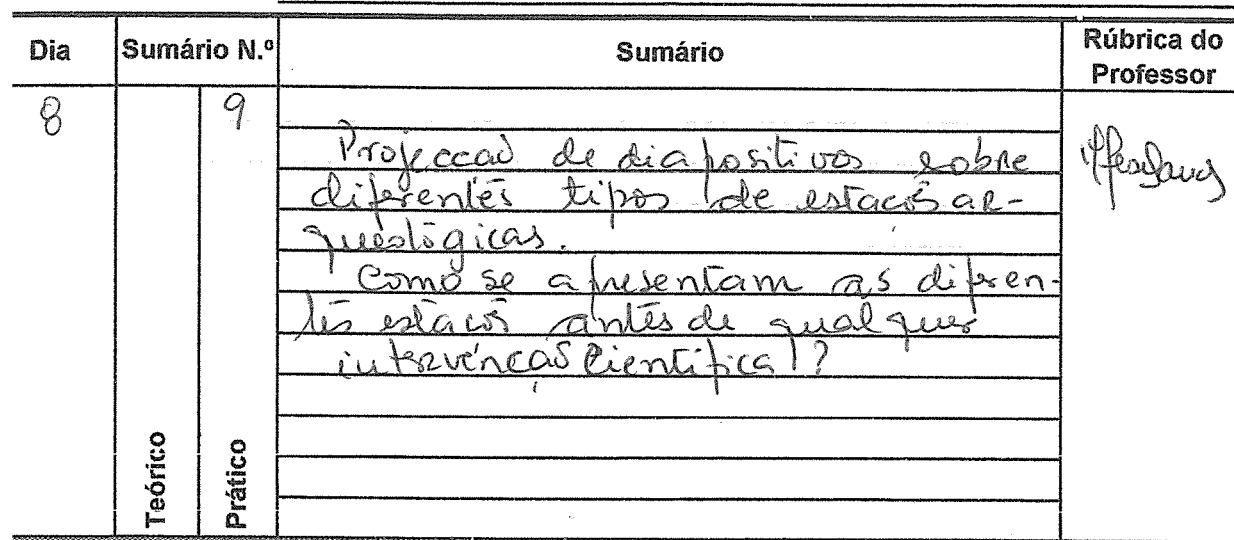 Dia Sumário N.º Sumário Rúbrica do Professor
8 9
Projecção de diapositivos sobre
diferentes tipos de estações ar-
queológicas.
Como se apresentam as diferen-
tes estações antes de qualquer
intervenção científica!?
Teórico Prático